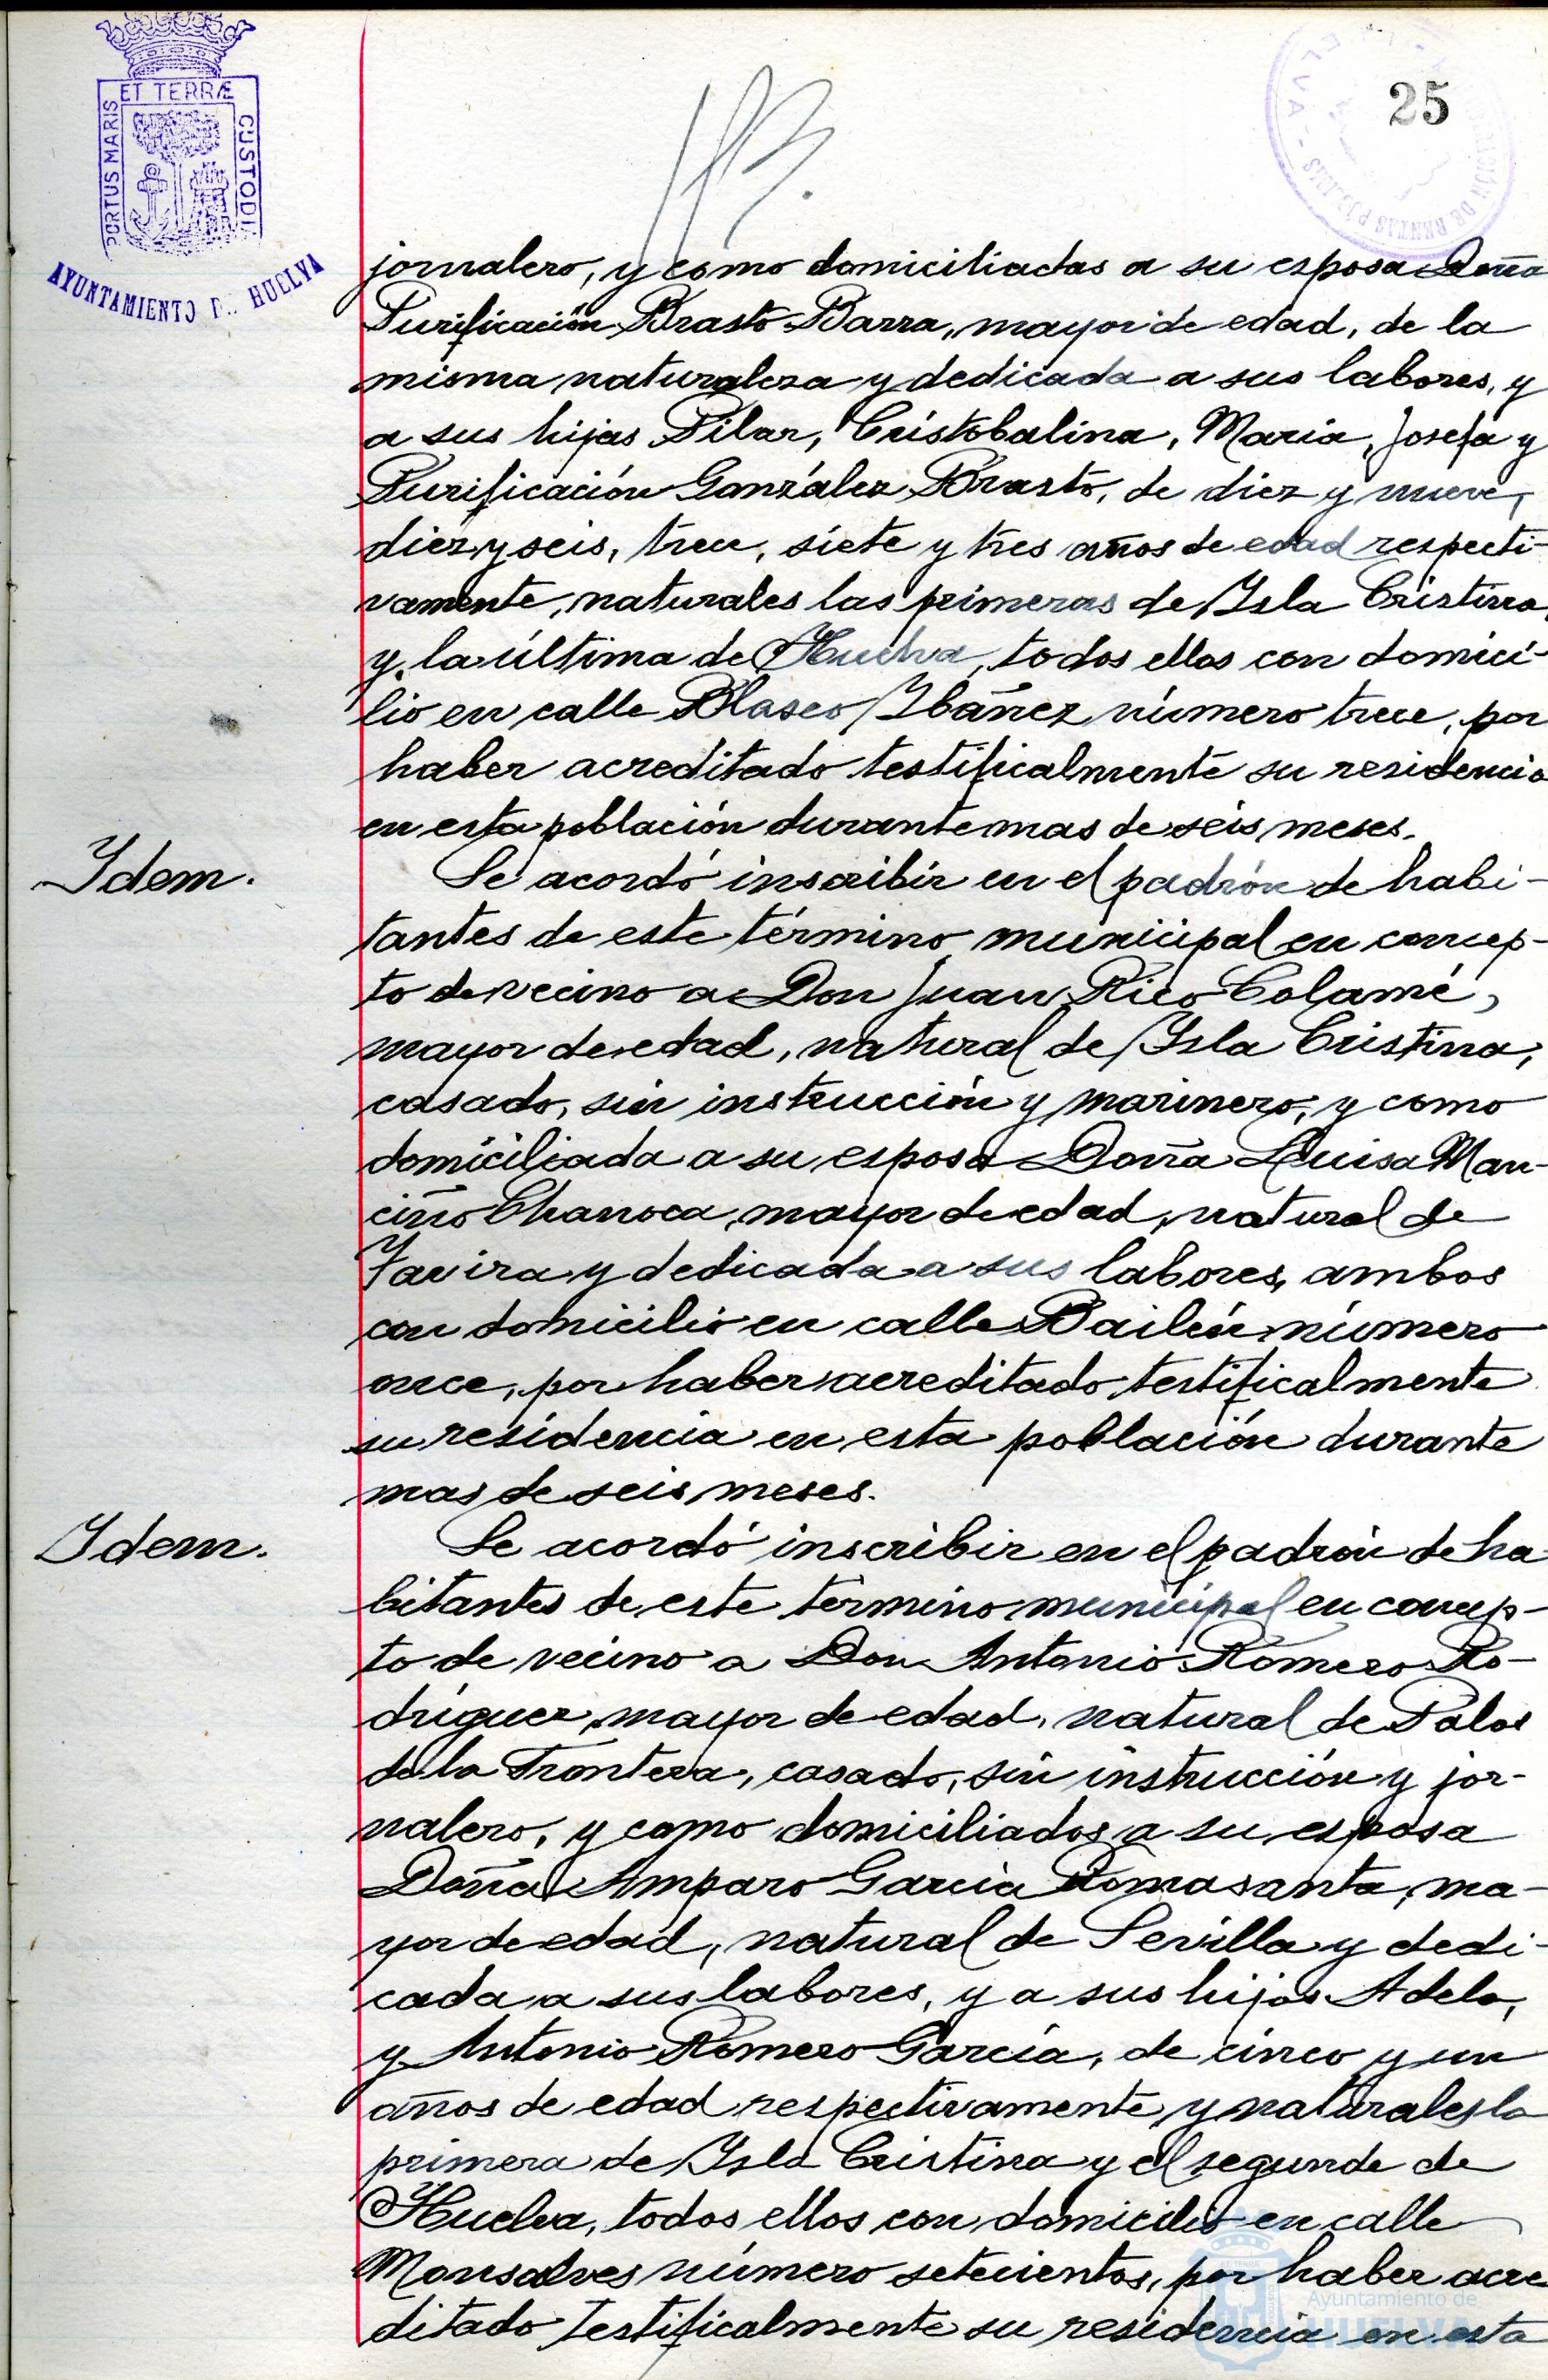 ET TERRÆ
PORTUS MARIS
CUSTODI
AYUNTAMIENTO DE HUELVA
25
jornalero, y como domiciliadas a su esposa Doña
Purificación Brasto Barra, mayor de edad, de la
misma naturaleza y dedicada a sus labores, y
a sus hijas Pilar, Cristobalina, María, Josefa y
Purificación González Brasto, de diez y nueve,
diez y seis, trece, siete y tres años de edad respecti-
vamente, naturales las primeras de Isla Cristina,
y la última de Huelva, todos ellos con domici-
lio en calle Blasco Ibáñez número trece, por
haber acreditado testificalmente su residencia
en esta población durante mas de seis meses.
Idem.
Se acordó inscribir en el padrón de habi-
tantes de este término municipal en concep-
to de vecino a Don Juan Rico Colamé,
mayor de edad, natural de Isla Cristina,
casado, sin instrucción y marinero, y como
domiciliada a su esposa Doña Luisa Man-
ciño Chanoca, mayor de edad, natural de
Tavira y dedicada a sus labores, ambos
con domicilio en calle Bailén número
once, por haber acreditado testificalmente
su residencia en esta población durante
mas de seis meses.
Idem.
Se acordó inscribir en el padrón de ha
bitantes de este término municipal en concep-
to de vecino a Don Antonio Romero Ro-
dríguez, mayor de edad, natural de Palos
de la Frontera, casado, sin instrucción y jor-
nalero, y como domiciliados a su esposa
Doña Amparo García Romasanta, ma-
yor de edad, natural de Sevilla y dedi-
cada a sus labores, y a sus hijos Adela,
y Antonio Romero García, de cinco y un
años de edad respectivamente y naturales la
primera de Isla Cristina y el segundo de
Huelva, todos ellos con domicilio en calle
Monsalves número setecientos, por haber acre
ditado testificalmente su residencia en esta
Ayuntamiento de
HUELVA